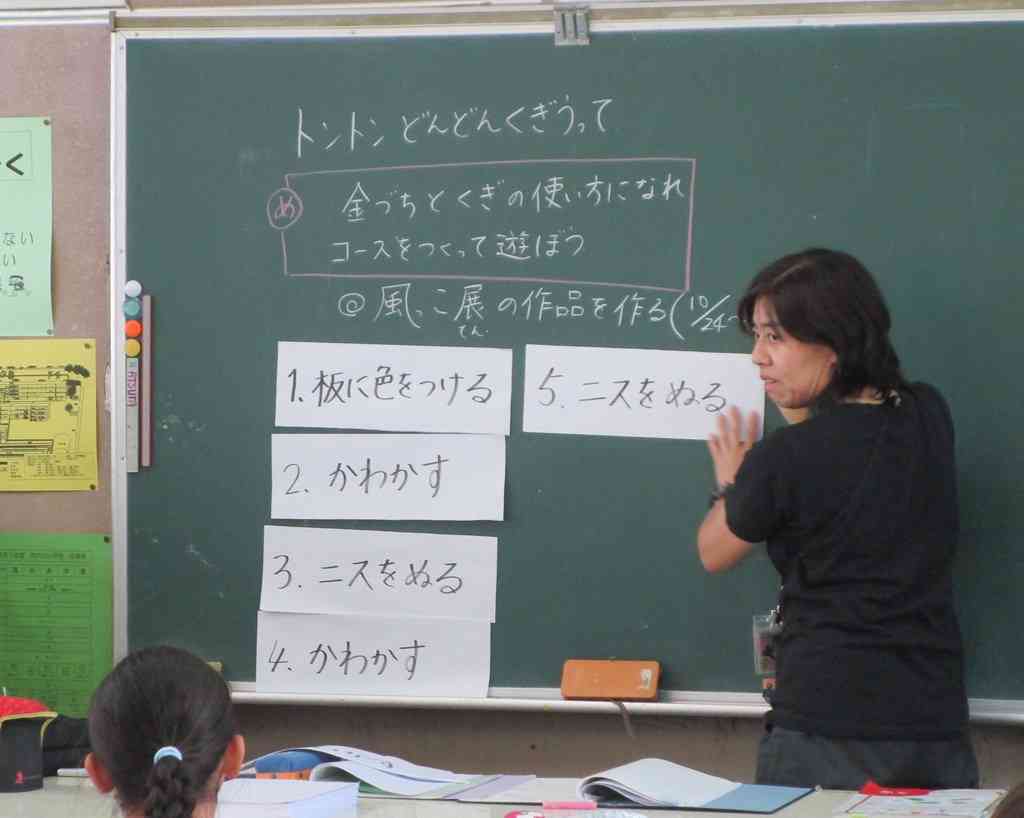 トントンどんどんくぎうって
め
金づちとくぎの使い方になれ
コースをつくって遊ぼう
@風っこ展の作品を作る(10/24~
てん
1.板に色をつける
2.かわかす
3.ニスをぬる
4.かわかす
5.ニスをぬる
く
ない
い